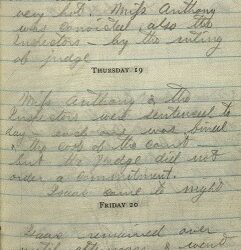 very hot. Miss Anthony
was convicted, also the
Inspectors - by the ruling
of judge
THURSDAY 19
Miss Anthony & the
Inspectors were sentenced to
day - each one was fined
& the cost of the court
but the Judge did not
order a commitment.
Isaac came to night
FRIDAY 20
Isaac remained over
until afternoon & went